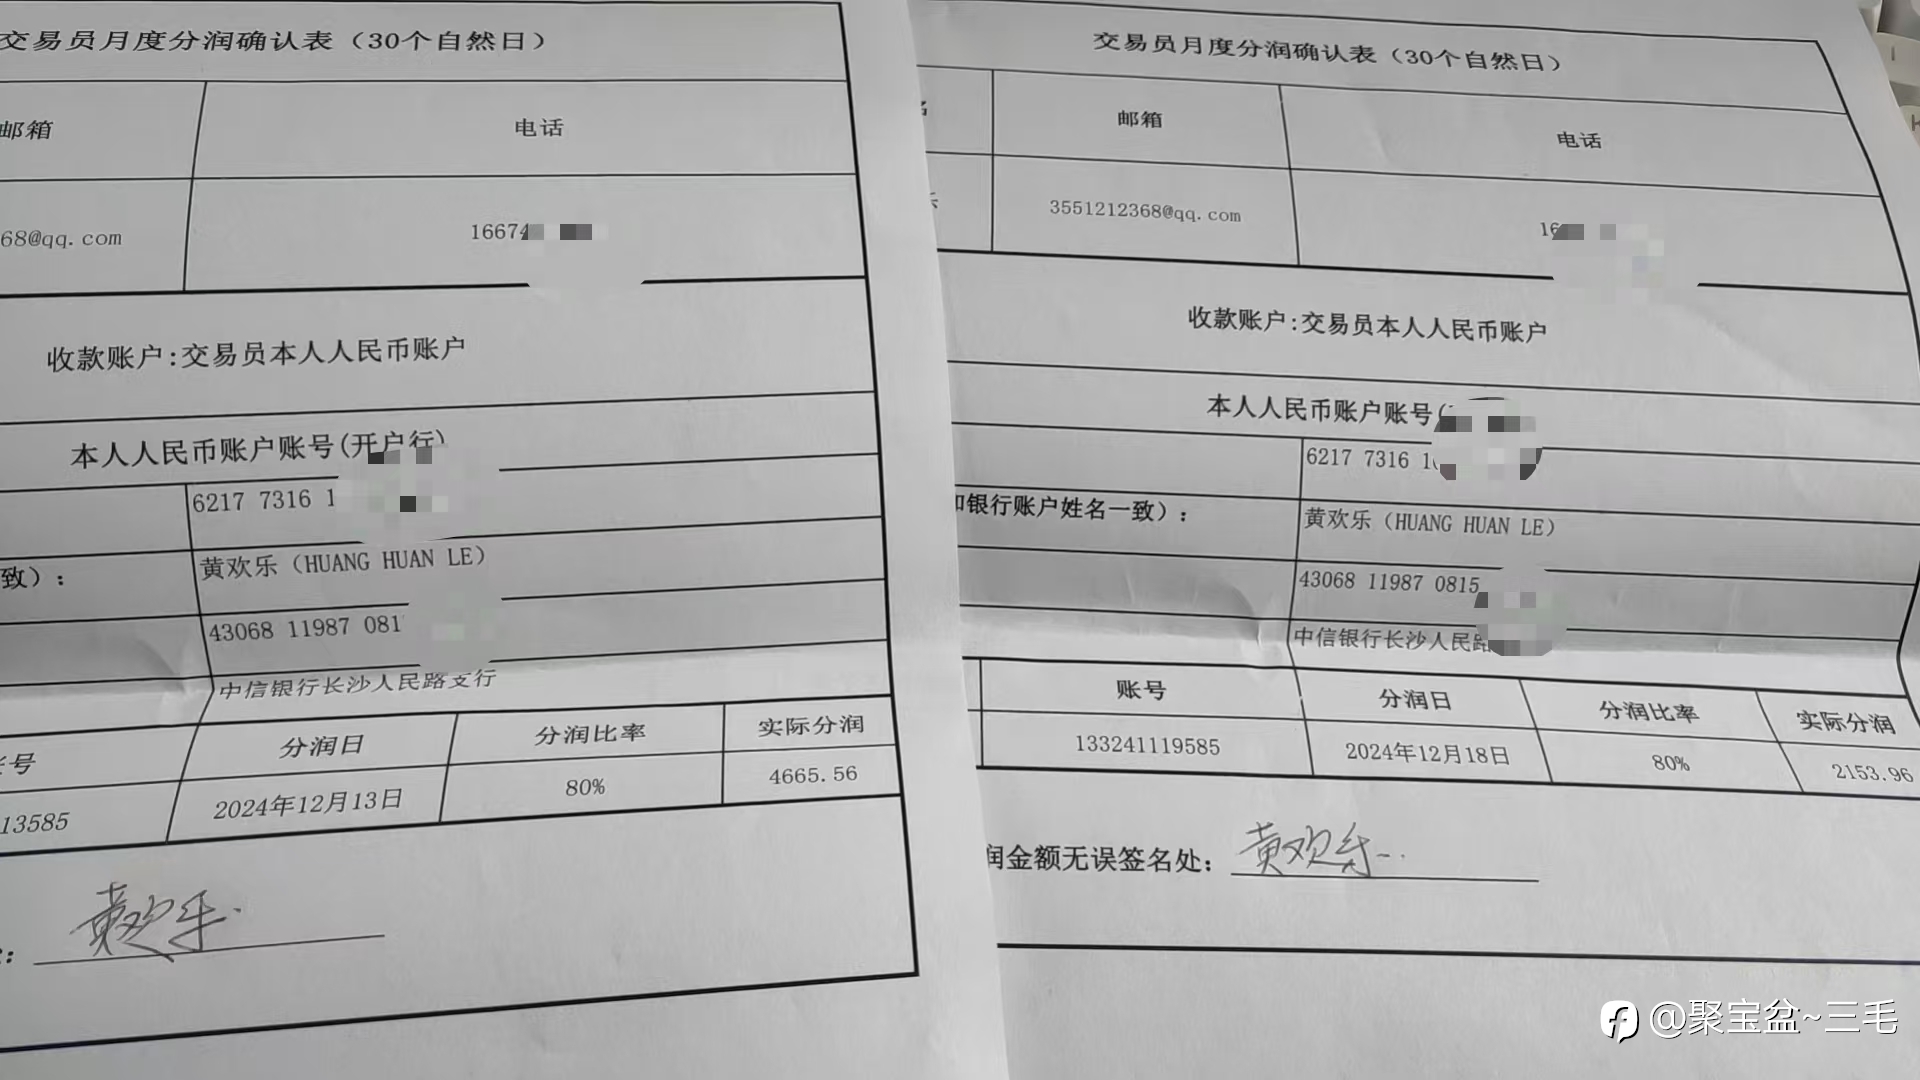 交易员月度分润确认表（30个自然日）
邮箱
电话
68@qq.com
16674
收款账户:交易员本人人民币账户
本人人民币账户账号(开户行)
6217 7316 1
致）:
黄欢乐（HUANG HUAN LE）
43068 11987 081
中信银行长沙人民路支行
号
分润日
分润比率
实际分润
13585
2024年12月13日
80%
4665.56
黄欢乐
交易员月度分润确认表（30个自然日）
邮箱
电话
3551212368@qq.com
16
收款账户:交易员本人人民币账户
本人人民币账户账号(
6217 7316 1
和银行账户姓名一致）:
黄欢乐（HUANG HUAN LE）
43068 11987 0815
中信银行长沙人民路
账号
分润日
分润比率
实际分润
133241119585
2024年12月18日
80%
2153.96
润金额无误签名处:
黄欢乐
@聚宝盆~三毛